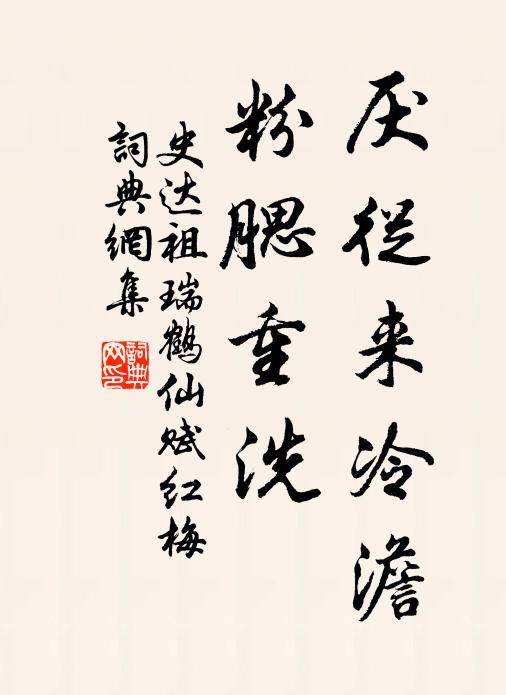 厌從来冷澹
粉腮重洗
史达祖瑞鶴仙赋红梅
詞典網集
詞典网印